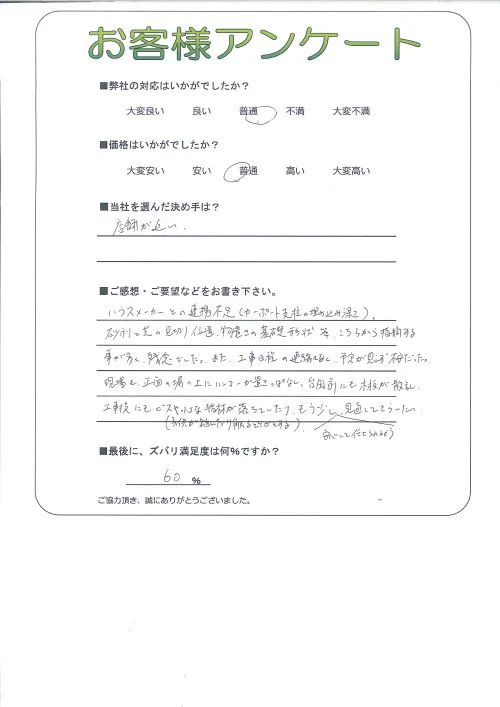 お客様アンケート
■弊社の対応はいかがでしたか？
大変良い 良い 普通 不満 大変不満
■価格はいかがでしたか？
大変安い 安い 普通 高い 大変高い
■当社を選んだ決め手は？
店舗が近い。
■ご感想・ご要望などをお書き下さい。
ハウスメーカーとの連携不足(カーポート支柱の埋め込み深さ)、
砂利と芝の見切り位置、物置きの基礎形状 等、こちらから指摘する
事が多く、残念でした。また、工事日程の連絡もなく、予定が見えず不安だった。
現場も、正面の塀の上にハンマーが置きっぱなし、台風前にも木板が散乱、
工事後にもビスや が落ちていたり、もう少し見直してもらいたい。
(子供が
安心して任せられる)
■最後に、ズバリ満足度は何%ですか？
60 %
ご協力頂き、誠にありがとうございました。